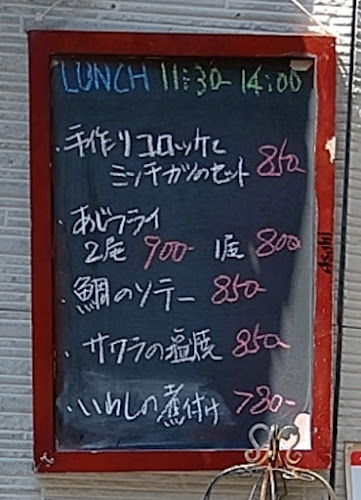 LUNCH 11:30-14:00
・手作りコロッケと
ミンチカツのセット 850-
・あじフライ
2尾 900- 1尾 800
・鯛のソテー 850-
・サワラの塩焼 850-
・いわしの煮付け 780-
Asahi